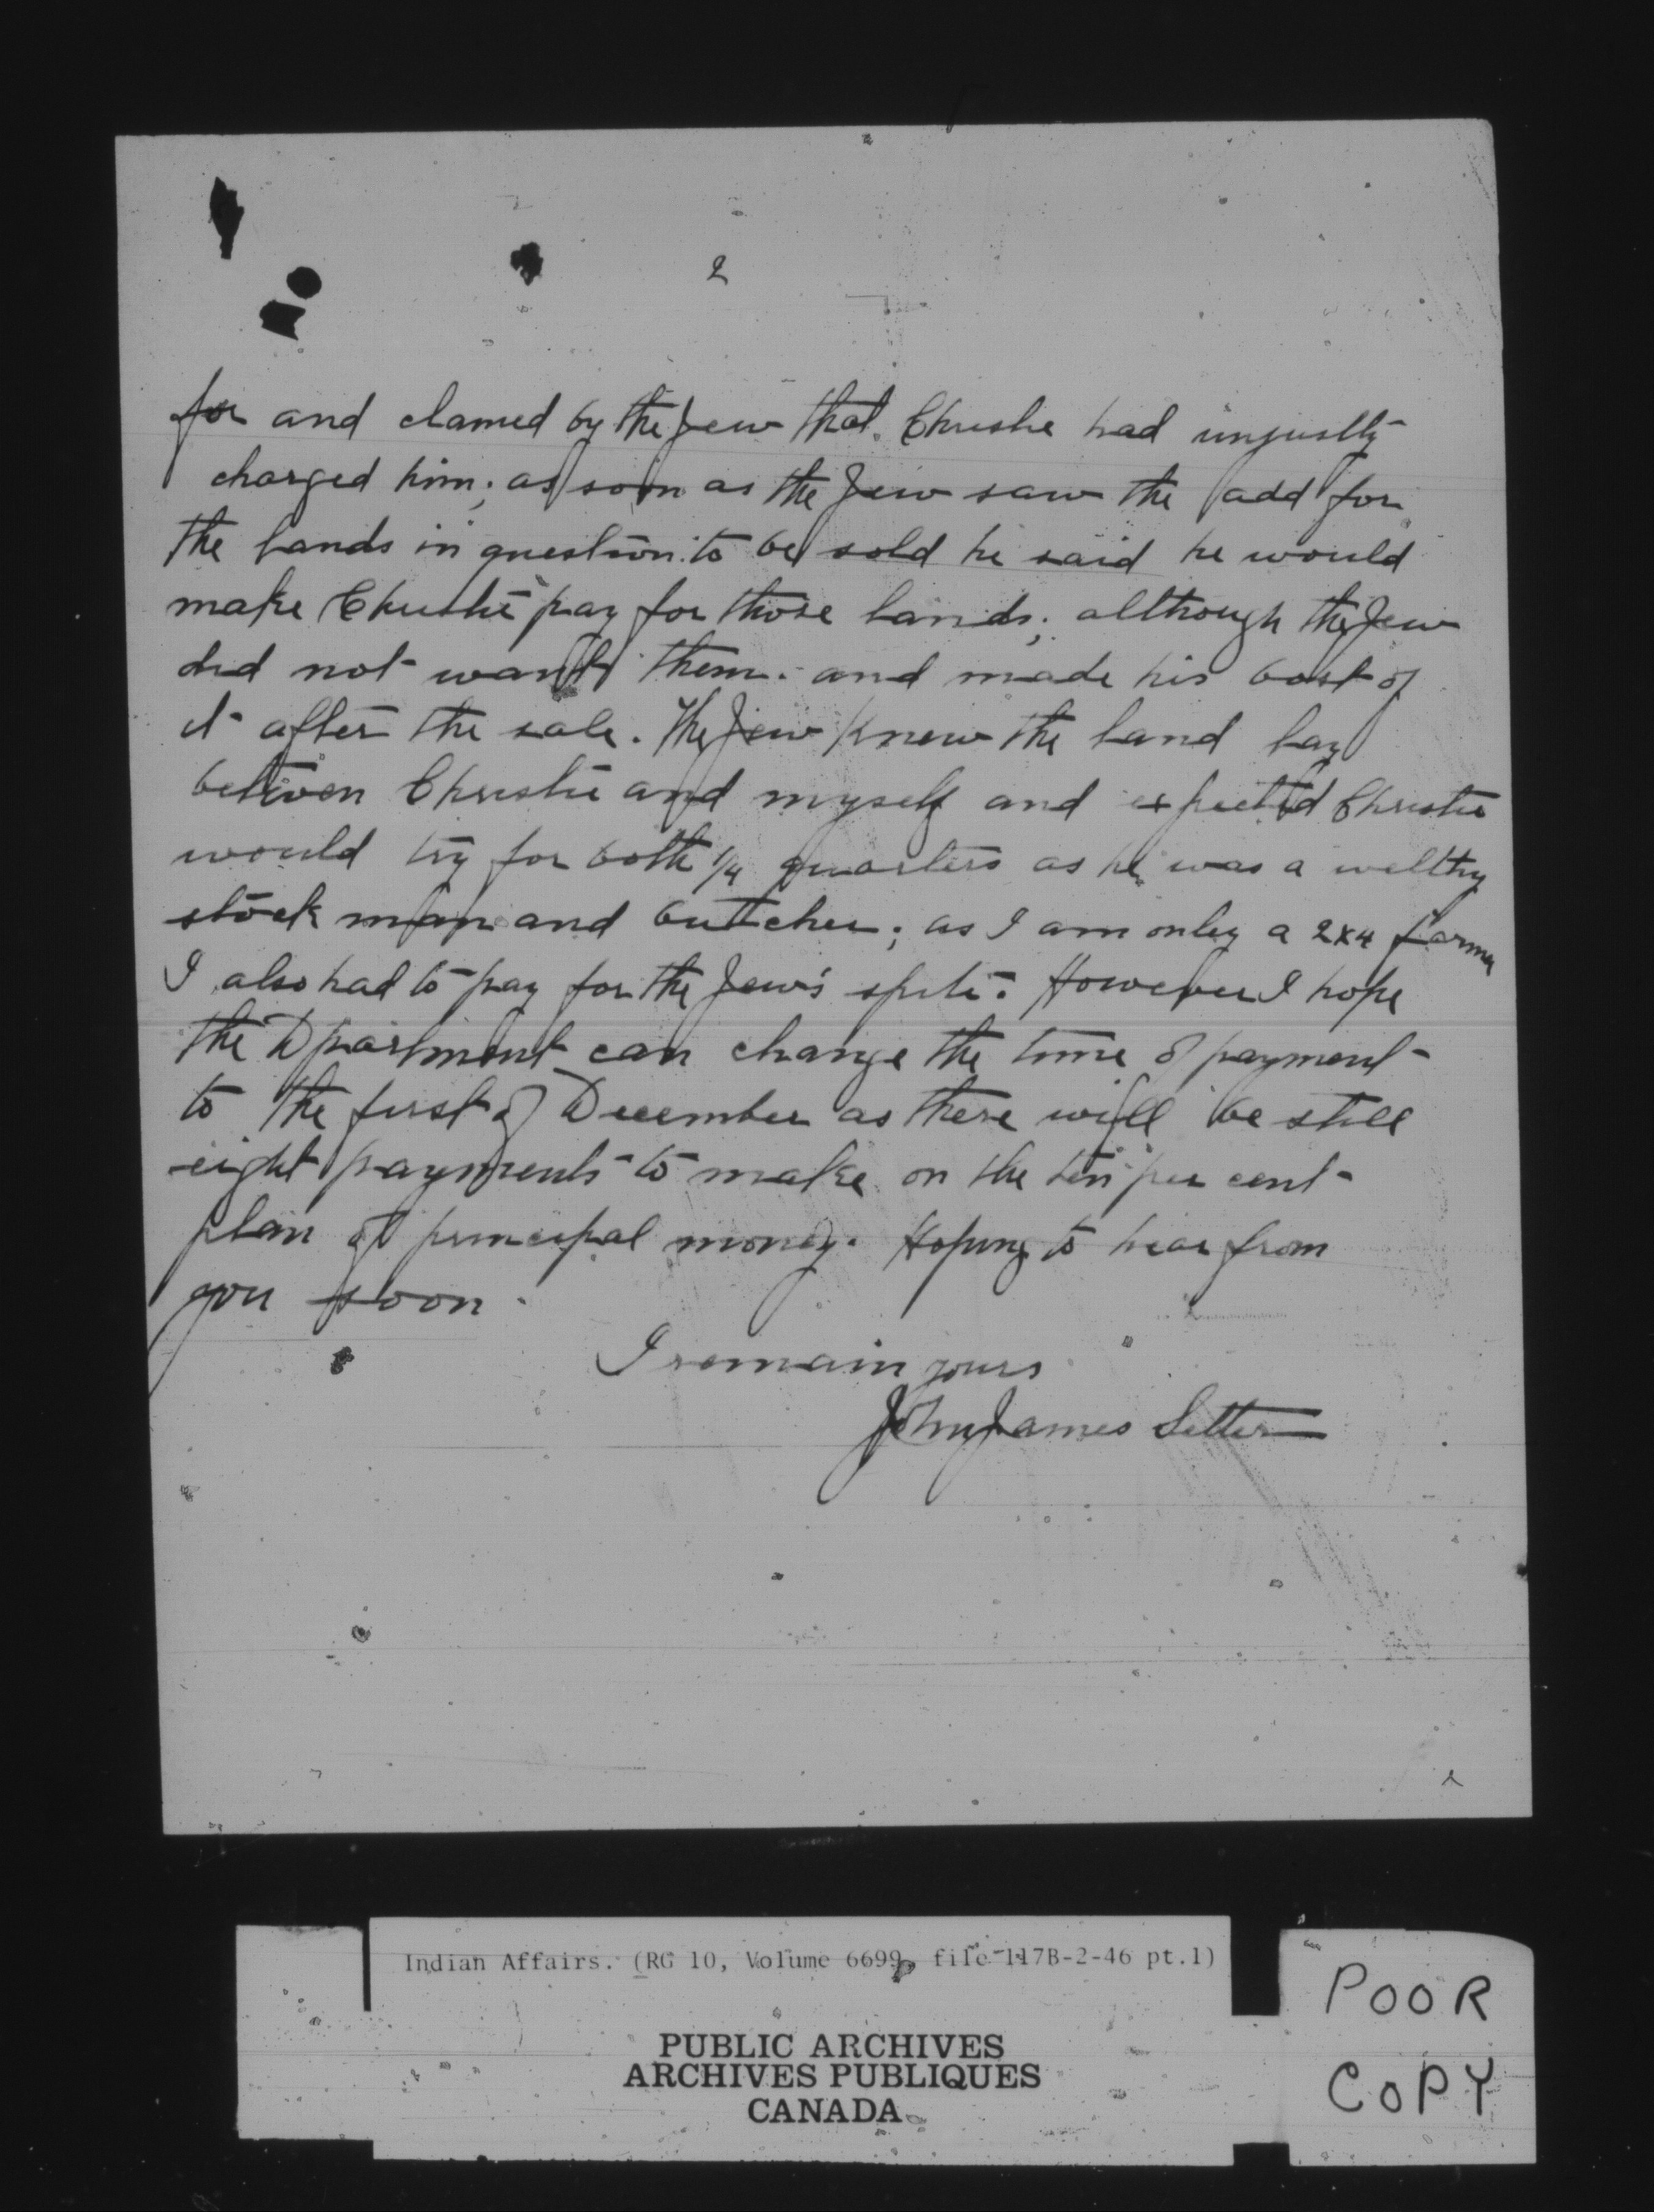 2
for and clamed by the Jew that Christie had unjustly
charged him; as soon as the Jew saw the add for
the lands in question to be sold he said he would
make Christie pay for those lands; although the Jew
did not want them. and made his bost of
it after the sale. The Jew knew the land lay
between Christie and myself and expected Christie
would try for both 1/4 quarters as he was a welthy
stock man and butcher; as I am only a 2x4 farmer
I also had to pay for the Jew's spite. However I hope
the Dpartment can change the time of payment
to the first of December as there will be still
eight payments to make on the ten per cent
plan of principal money. Hoping to hear from
you soon.
I remain yours
John James Setter
Indian Affairs. (RG 10, Volume 6699, file 117B-2-46 pt.1)
PUBLIC ARCHIVES
ARCHIVES PUBLIQUES
CANADA
POOR
COPY